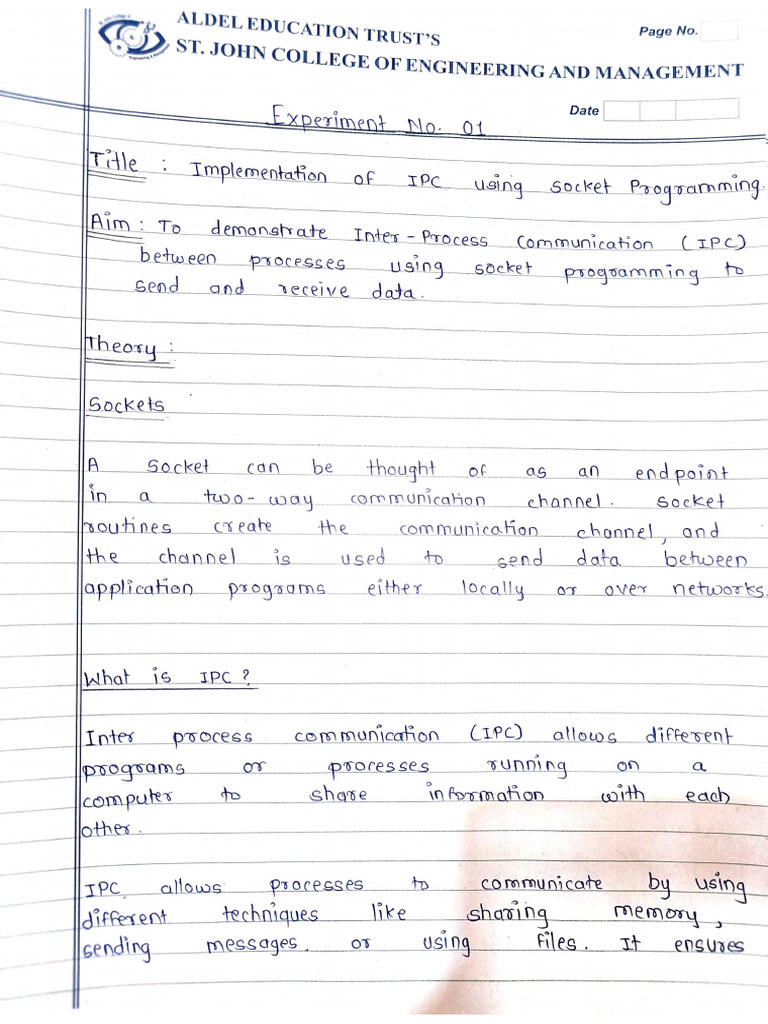 ALDEL EDUCATION TRUST'S
Page No.
ST. JOHN COLLEGE OF ENGINEERING AND MANAGEMENT
Date
Experiment No. 01
Title : Implementation of IPC using Socket Programming.
Aim : To demonstrate Inter-Process Communication (IPC)
between processes using socket programming to
send and receive data.
Theory :
Sockets
A Socket can be thought of as an endpoint
in a two-way communication channel. Socket
routines create the communication channel, and
the channel is used to send data between
application programs either locally or over networks.
What is IPC?
Inter process communication (IPC) allows different
programs or processes running on a
computer to share information with each
other.
IPC allows processes to communicate by using
different techniques like sharing memory,
sending messages. or using files. It ensures